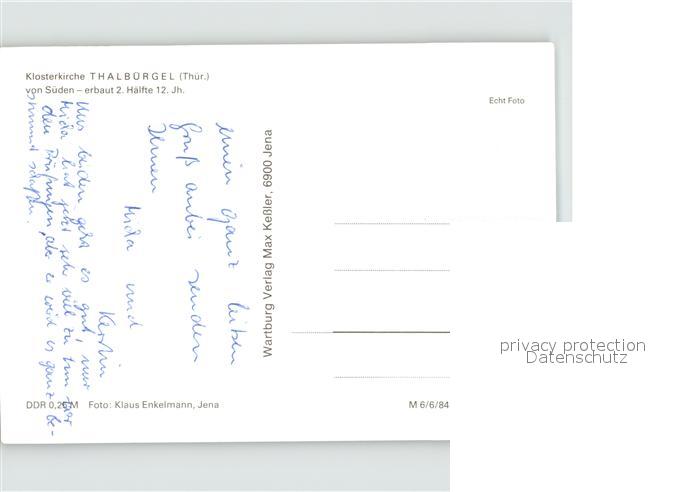 Klosterkirche THALBÜRGEL (Thür.)
von Süden – erbaut 2. Hälfte 12. Jh.
Echt Foto
Wartburg Verlag Max Keßler, 6900 Jena
einen ganz lieben
Gruß anbei senden
Ihnen
und
Kerstin
Uns beiden geht es gut, nur
hat jetzt sehr viel zu tun vor
den Prüfungen, aber er wird es ganz be-
stimmt schaffen.
DDR 0,25 M Foto: Klaus Enkelmann, Jena
M 6/6/84
privacy protection
Datenschutz